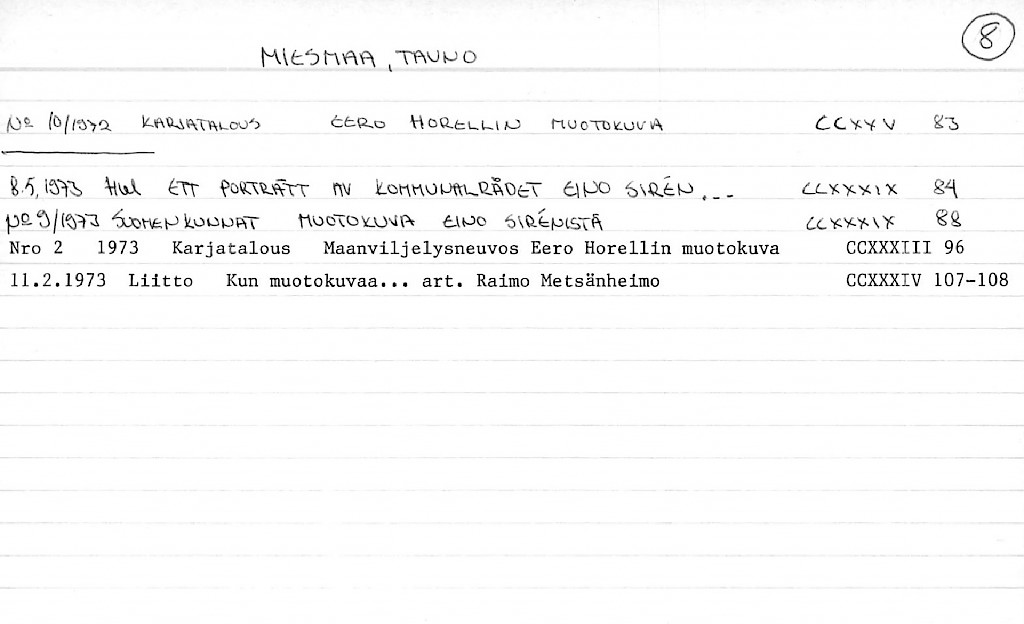 8
MIESMAA, TAUNO
No 10/1972 KARJATALOUS EERO HORELLIN MUOTOKUVA CCXXV 83
8.5.1973 Hbl ETT PORTRÄTT AV KOMMUNALRÅDET EINO SIRÉN... CCXXXIX 84
No 9/1973 SUOMEN KUNNAT MUOTOKUVA EINO SIRÉNISTÄ CCXXXIX 88
Nro 2 1973 Karjatalous Maanviljelysneuvos Eero Horellin muotokuva CCXXXIII 96
11.2.1973 Liitto Kun muotokuvaa... art. Raimo Metsänheimo CCXXXIV 107-108